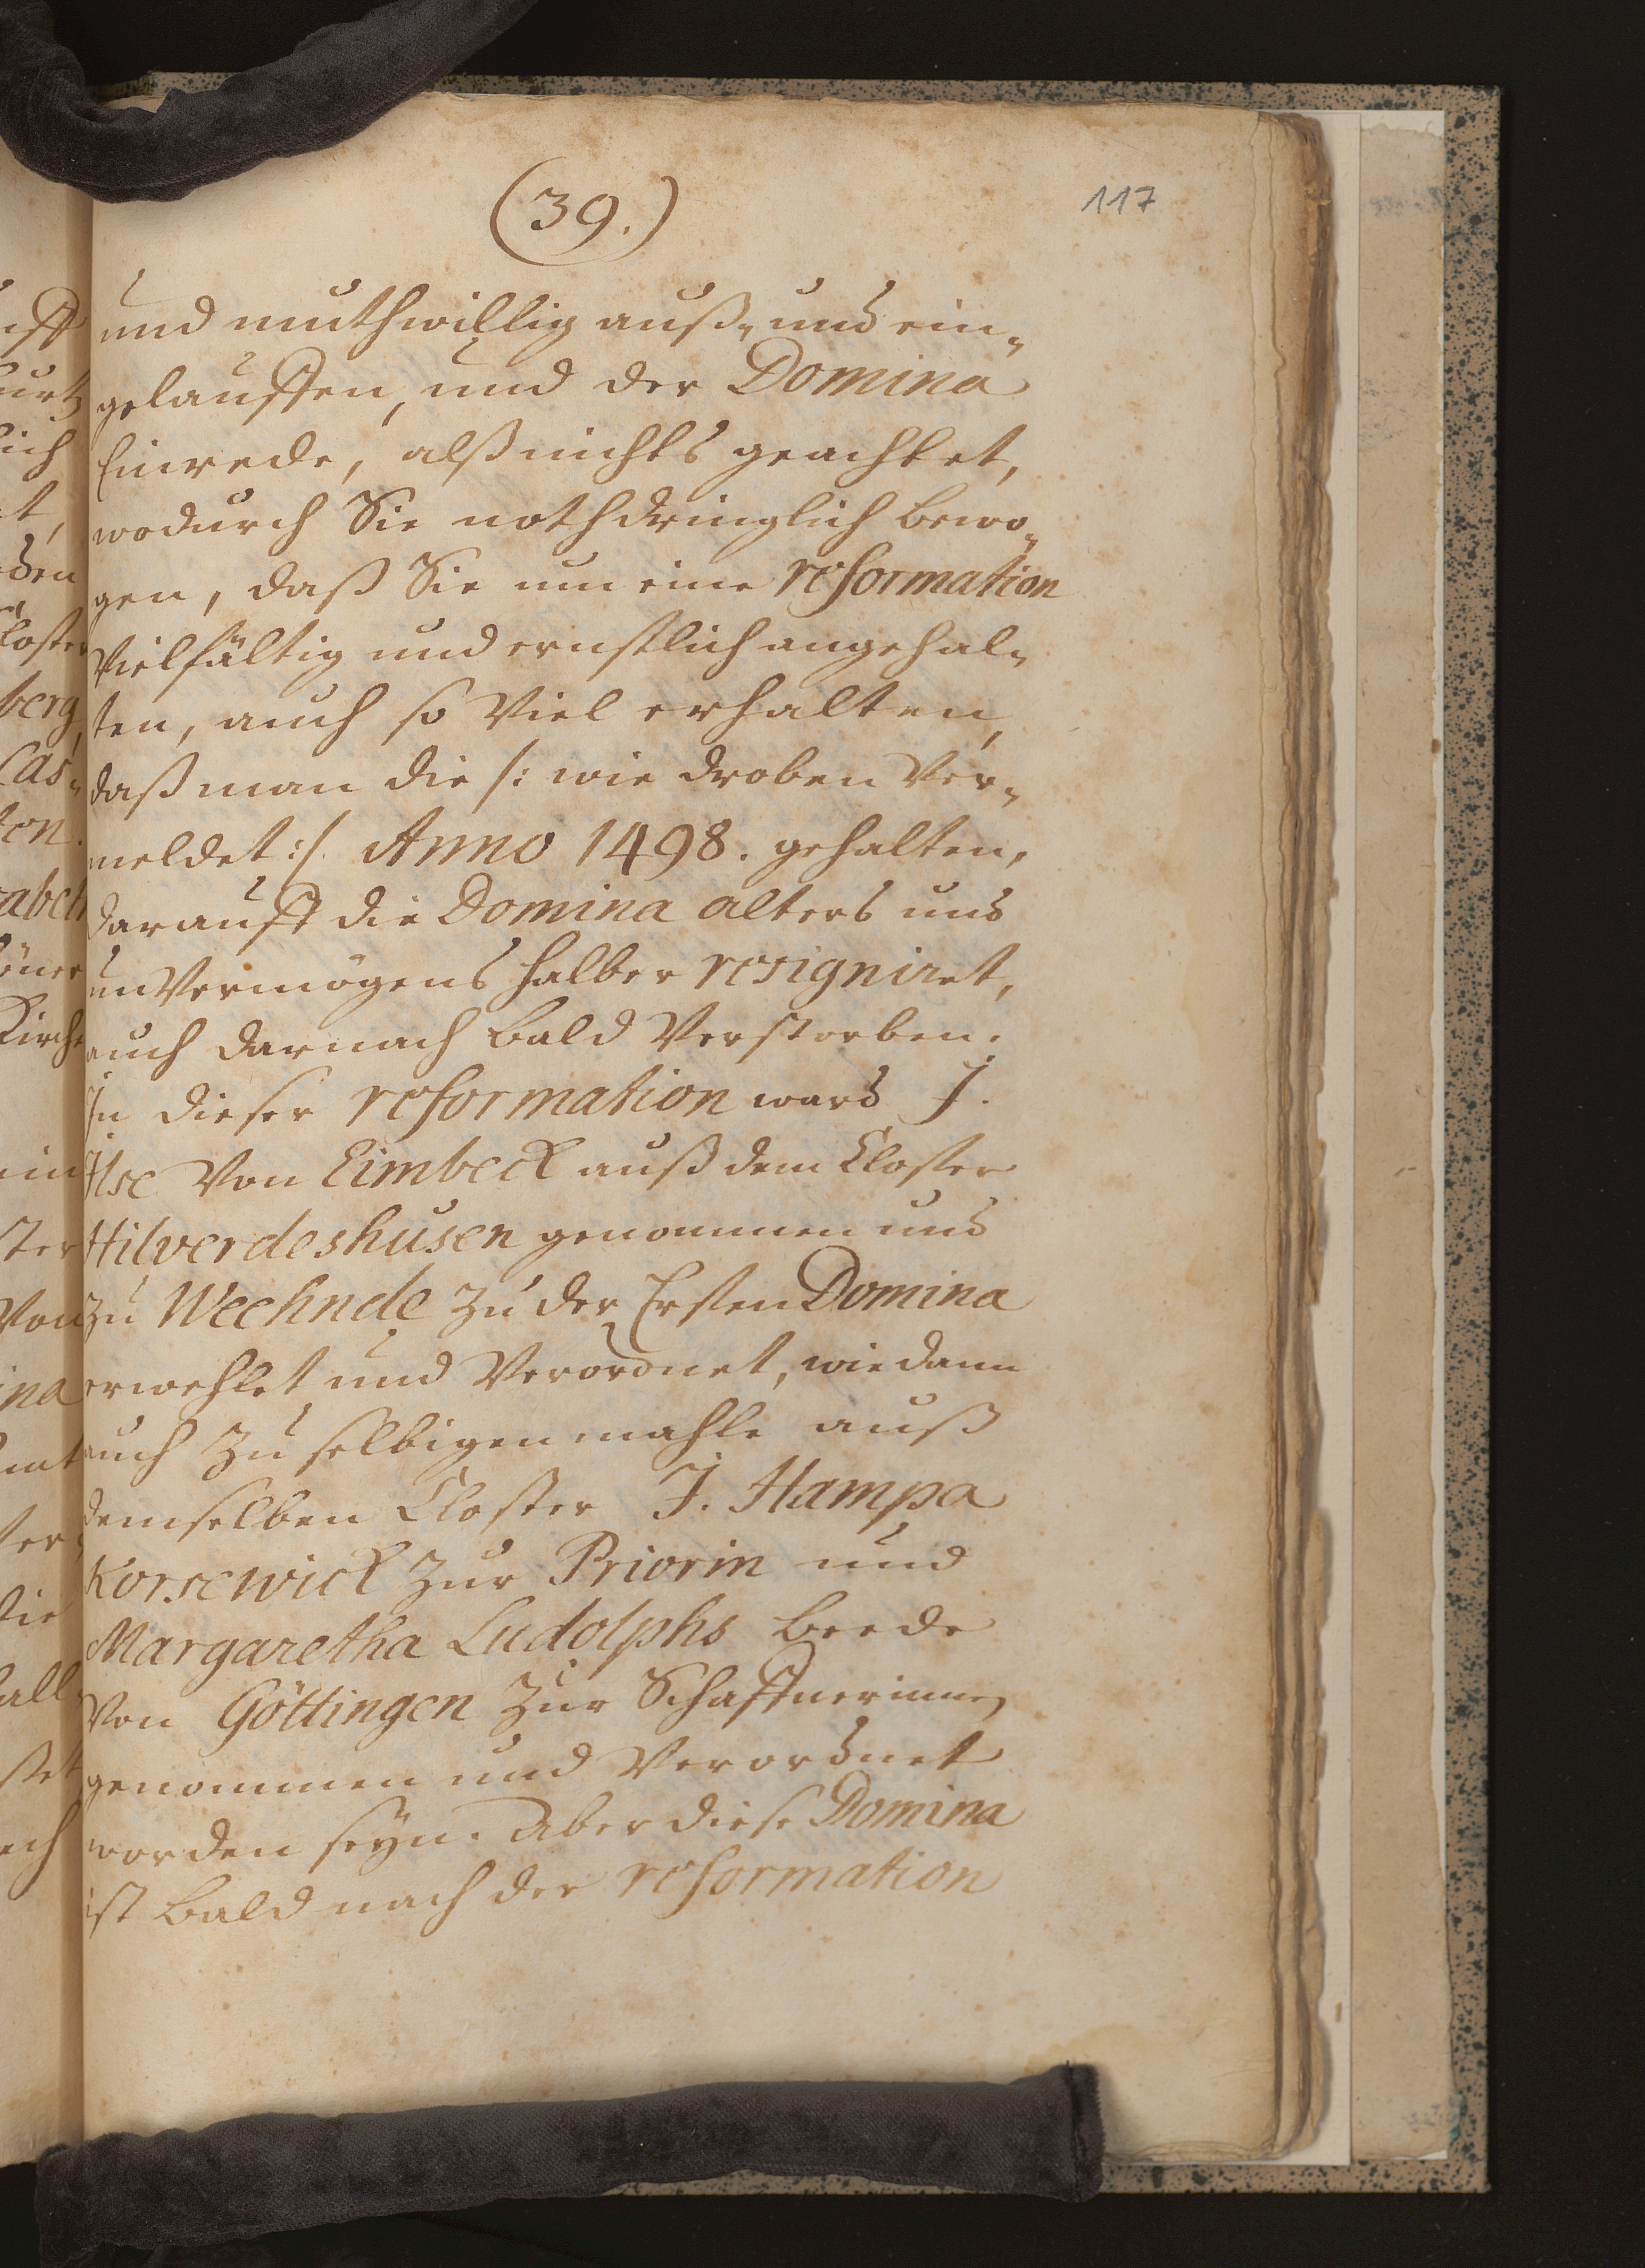 (39.)
117
und muthwillig auß- und ein-
gelauffen, und der Domina
Einrede, alß nichts geachtet,
wodurch Sie nothdringlich bewo-
gen, daß Sie um eine reformation
Vielfältig und ernstlich angehal-
ten, auch so Viel erhalten,
daß man die /: wie droben Ver-
meldet :/ Anno 1498. gehalten,
darauff die Domina alters und
unVermögens halber resigniret,
auch darnach bald Verstorben.
In dieser reformation ward J.
Ilse Von Eimbeck auß dem Closter
Hilverdeshusen genommen und
zu Weehnde zu der Ersten Domina
erwehlet und Verordnet, wie dann
auch zu selbigen mahle auß
demselben Closter J. Hampa
Korsewick zur Priorin und
Margaretha Ludolphs beede
Von Göttingen zur Schaffnerinne,
genommen und Verordnet
worden seyn. Aber diese Domina
ist bald nach der reformation